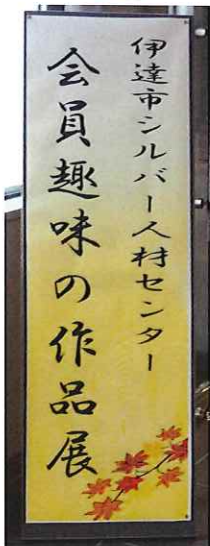 伊達市シルバー人材センター
会員趣味の作品展